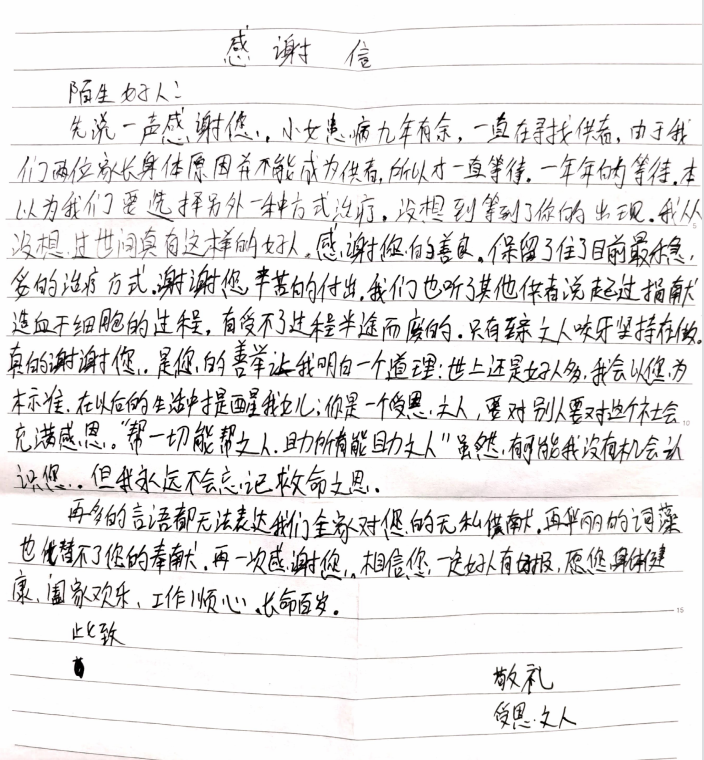 感谢信
陌生好人：
先说一声感谢您。小女患病九年有余，一直在寻找供者，由于我
们两位家长身体原因并不能成为供者，所以才一直等待，一年年的等待。本
以为我们要选择另外一种方式治疗，没想到等到了你的出现。我从
没想过世间真有这样的好人。感谢您的善良，保留了住了目前最
多的治疗方式。谢谢您辛苦的付出，我们也听了其他供者说起过捐献
造血干细胞的过程，有受不了过程半途而废的。只有亲人咬牙坚持在做。
真的谢谢您。是您的善举让我明白一个道理：世上还是好人多，我会以您为
标准，在以后的生活中提醒我女儿：你是一个受恩之人，要对别人要对这个社会
充满感恩。“帮一切能帮之人，助所有能助之人”虽然，有可能我没有机会认
识您。但我永远不会忘记救命之恩。
再多的言语都无法表达我们全家对您的无私供献，再华丽的词藻
也代替不了您的奉献。再一次感谢您，相信您一定好人有好报，愿您身体健
康、阖家欢乐、工作顺心、长命百岁。
此致
敬礼
受恩之人
5
10
15